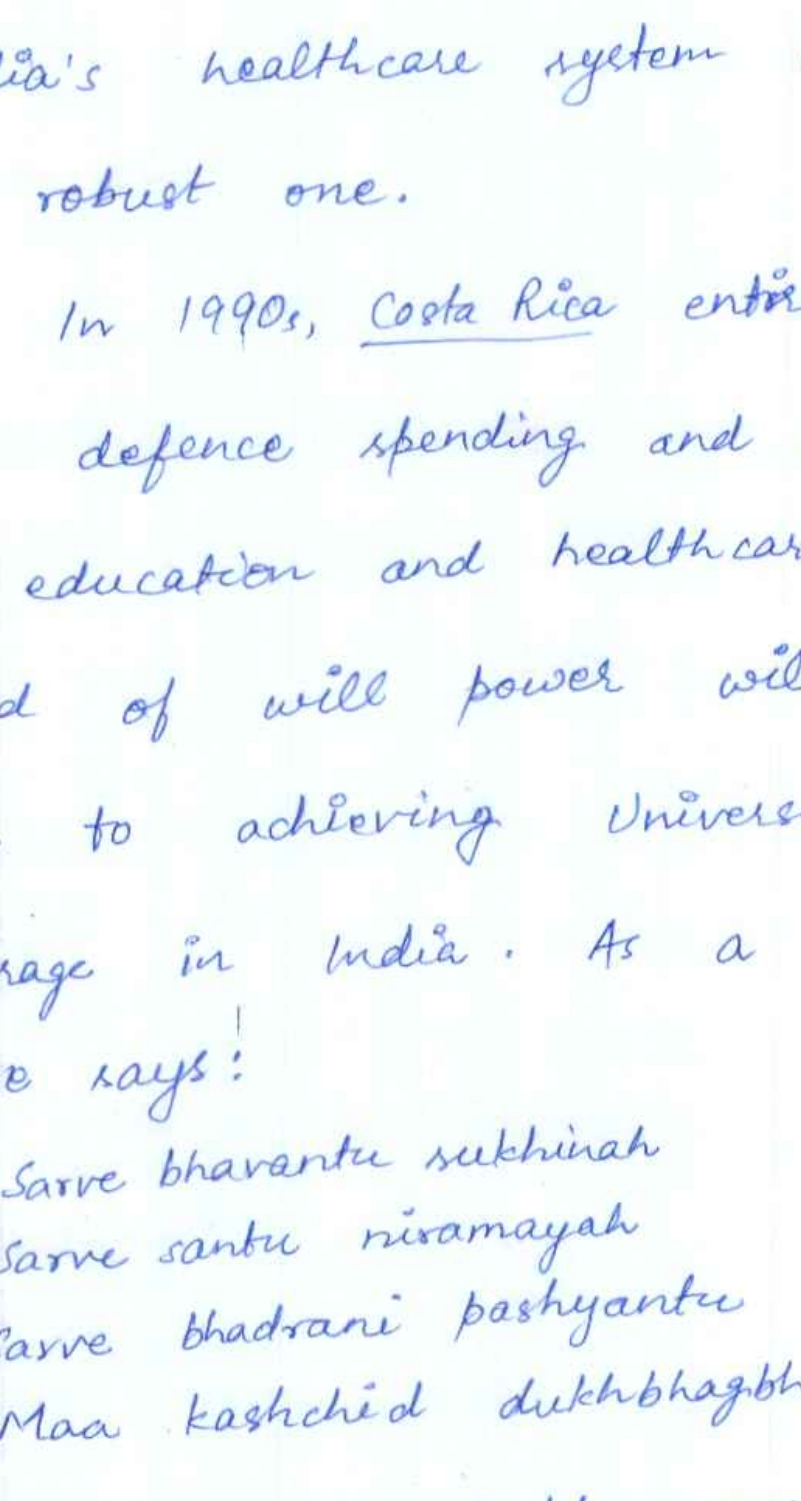 ia's healthcare system
robust one.
In 1990s, Costa Rica enti
defence spending and
education and healthcar
d of will power wil
to achieving Univers
rage in India. As a
e says:
Sarve bhavantu sukhinah
Sarve santu niramayah
Sarve bhadrani pashyantu
Maa kashchid dukhbhagbh